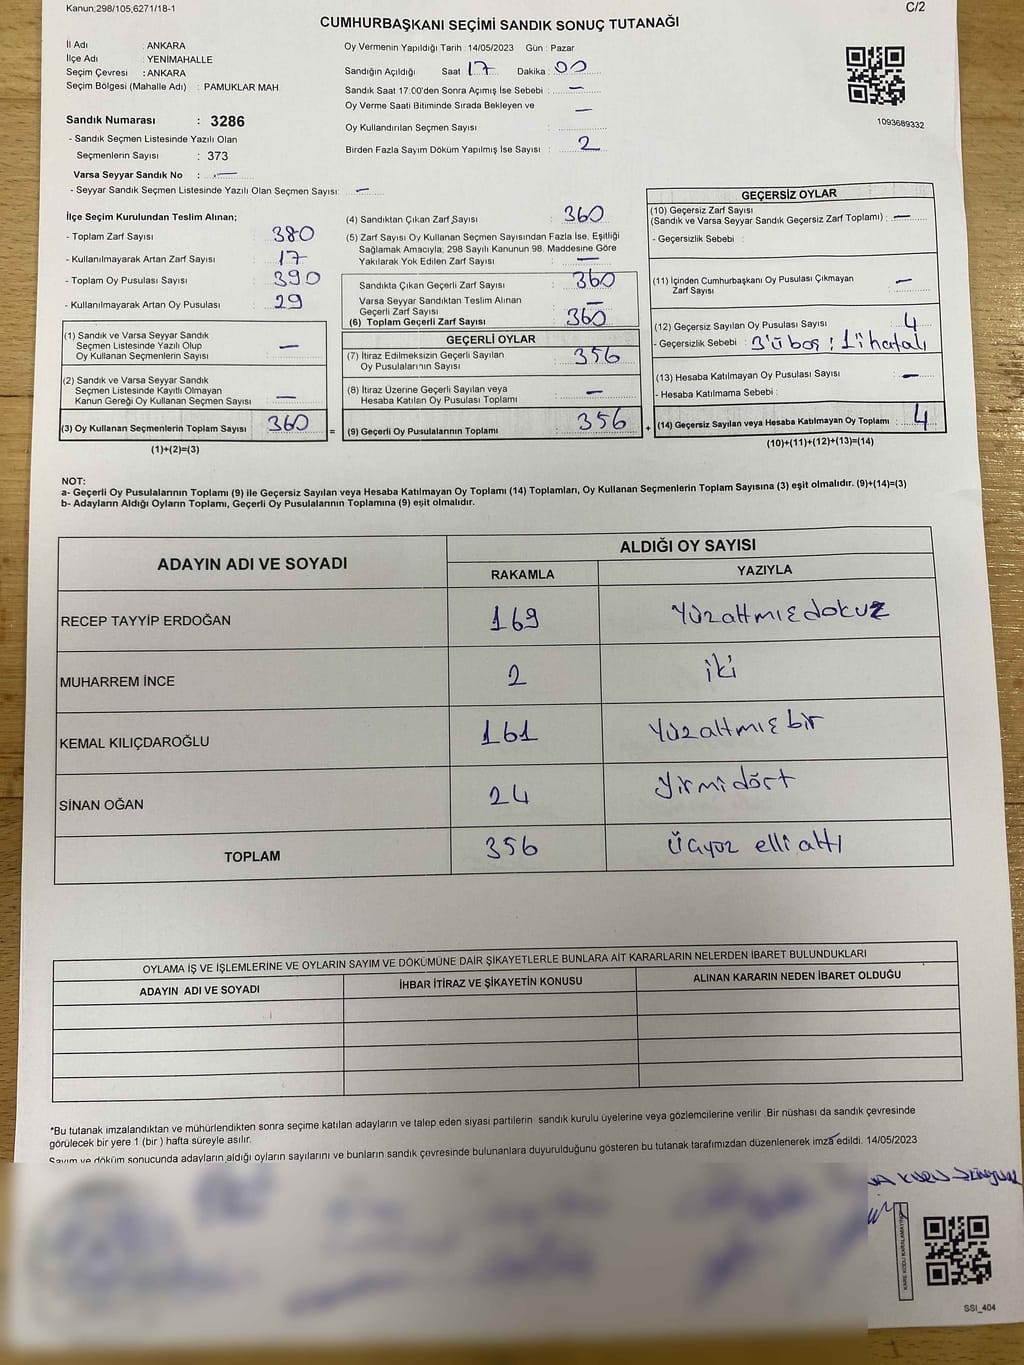 Kanun,298/105,6271/18-1
C/2
CUMHURBAŞKANI SEÇİMİ SANDIK SONUÇ TUTANAĞI
İl Adı : ANKARA
İlçe Adı : YENİMAHALLE
Seçim Çevresi : ANKARA
Seçim Bölgesi (Mahalle Adı) : PAMUKLAR MAH.
Oy Vermenin Yapıldığı Tarih : 14/05/2023 Gün : Pazar
Sandığın Açıldığı Saat 17 Dakika : 00
Sandık Saat 17:00'den Sonra Açımış İse Sebebi : —
Oy Verme Saati Bitiminde Sırada Bekleyen ve —
Oy Kullandırılan Seçmen Sayısı :
Birden Fazla Sayım Döküm Yapılmış İse Sayısı : 2
1093689332
Sandık Numarası : 3286
- Sandık Seçmen Listesinde Yazılı Olan
Seçmenlerin Sayısı : 373
Varsa Seyyar Sandık No : —
- Seyyar Sandık Seçmen Listesinde Yazılı Olan Seçmen Sayısı: —
İlçe Seçim Kurulundan Teslim Alınan;
- Toplam Zarf Sayısı : 380
- Kullanılmayarak Artan Zarf Sayısı : 17
- Toplam Oy Pusulası Sayısı : 390
- Kullanılmayarak Artan Oy Pusulası : 29
(1) Sandık ve Varsa Seyyar Sandık
Seçmen Listesinde Yazılı Olup
Oy Kullanan Seçmenlerin Sayısı : —
(2) Sandık ve Varsa Seyyar Sandık
Seçmen Listesinde Kayıtlı Olmayan
Kanun Gereği Oy Kullanan Seçmen Sayısı : —
(3) Oy Kullanan Seçmenlerin Toplam Sayısı : 360 =
(1)+(2)=(3)
(4) Sandıktan Çıkan Zarf Sayısı : 360
(5) Zarf Sayısı Oy Kullanan Seçmen Sayısından Fazla İse, Eşitliği
Sağlamak Amacıyla; 298 Sayılı Kanunun 98. Maddesine Göre
Yakılarak Yok Edilen Zarf Sayısı : —
Sandıkta Çıkan Geçerli Zarf Sayısı : 360
Varsa Seyyar Sandıktan Teslim Alınan
Geçerli Zarf Sayısı : —
(6) Toplam Geçerli Zarf Sayısı : 360
GEÇERLİ OYLAR
(7) İtiraz Edilmeksizin Geçerli Sayılan
Oy Pusulalarının Sayısı : 356
(8) İtiraz Üzerine Geçerli Sayılan veya
Hesaba Katılan Oy Pusulası Toplamı : —
(9) Geçerli Oy Pusulalarının Toplamı : 356 +
GEÇERSİZ OYLAR
(10) Geçersiz Zarf Sayısı
(Sandık ve Varsa Seyyar Sandık Geçersiz Zarf Toplamı) : —
- Geçersizlik Sebebi :
(11) İçinden Cumhurbaşkanı Oy Pusulası Çıkmayan
Zarf Sayısı : —
(12) Geçersiz Sayılan Oy Pusulası Sayısı : 4
- Geçersizlik Sebebi : 3'ü boş; 1'i hatalı
(13) Hesaba Katılmayan Oy Pusulası Sayısı : —
- Hesaba Katılmama Sebebi :
(14) Geçersiz Sayılan veya Hesaba Katılmayan Oy Toplamı : 4
(10)+(11)+(12)+(13)=(14)
NOT:
a- Geçerli Oy Pusulalarının Toplamı (9) ile Geçersiz Sayılan veya Hesaba Katılmayan Oy Toplamı (14) Toplamları, Oy Kullanan Seçmenlerin Toplam Sayısına (3) eşit olmalıdır. (9)+(14)=(3)
b- Adayların Aldığı Oyların Toplamı, Geçerli Oy Pusulalarının Toplamına (9) eşit olmalıdır.
ADAYIN ADI VE SOYADI ALDIĞI OY SAYISI
RAKAMLA YAZIYLA
RECEP TAYYİP ERDOĞAN 169 Yüzaltmışdokuz
MUHARREM İNCE 2 iki
KEMAL KILIÇDAROĞLU 161 Yüzaltmış bir
SİNAN OĞAN 24 Yirmidört
TOPLAM 356 Üçyüz elli altı
OYLAMA İŞ VE İŞLEMLERİNE VE OYLARIN SAYIM VE DÖKÜMÜNE DAİR ŞİKAYETLERLE BUNLARA AİT KARARLARIN NELERDEN İBARET BULUNDUKLARI
ADAYIN ADI VE SOYADI İHBAR İTİRAZ VE ŞİKAYETİN KONUSU ALINAN KARARIN NEDEN İBARET OLDUĞU
*Bu tutanak imzalandıktan ve mühürlendikten sonra seçime katılan adayların ve talep eden siyasi partilerin sandık kurulu üyelerine veya gözlemcilerine verilir .Bir nüshası da sandık çevresinde
görülecek bir yere 1 (bir ) hafta süreyle asılır.
Sayım ve döküm sonucunda adayların aldığı oyların sayılarını ve bunların sandık çevresinde bulunanlara duyurulduğunu gösteren bu tutanak tarafımızdan düzenlenerek imza edildi. 14/05/2023
KARE KODU KARALAMAYINIZ
SSI_404